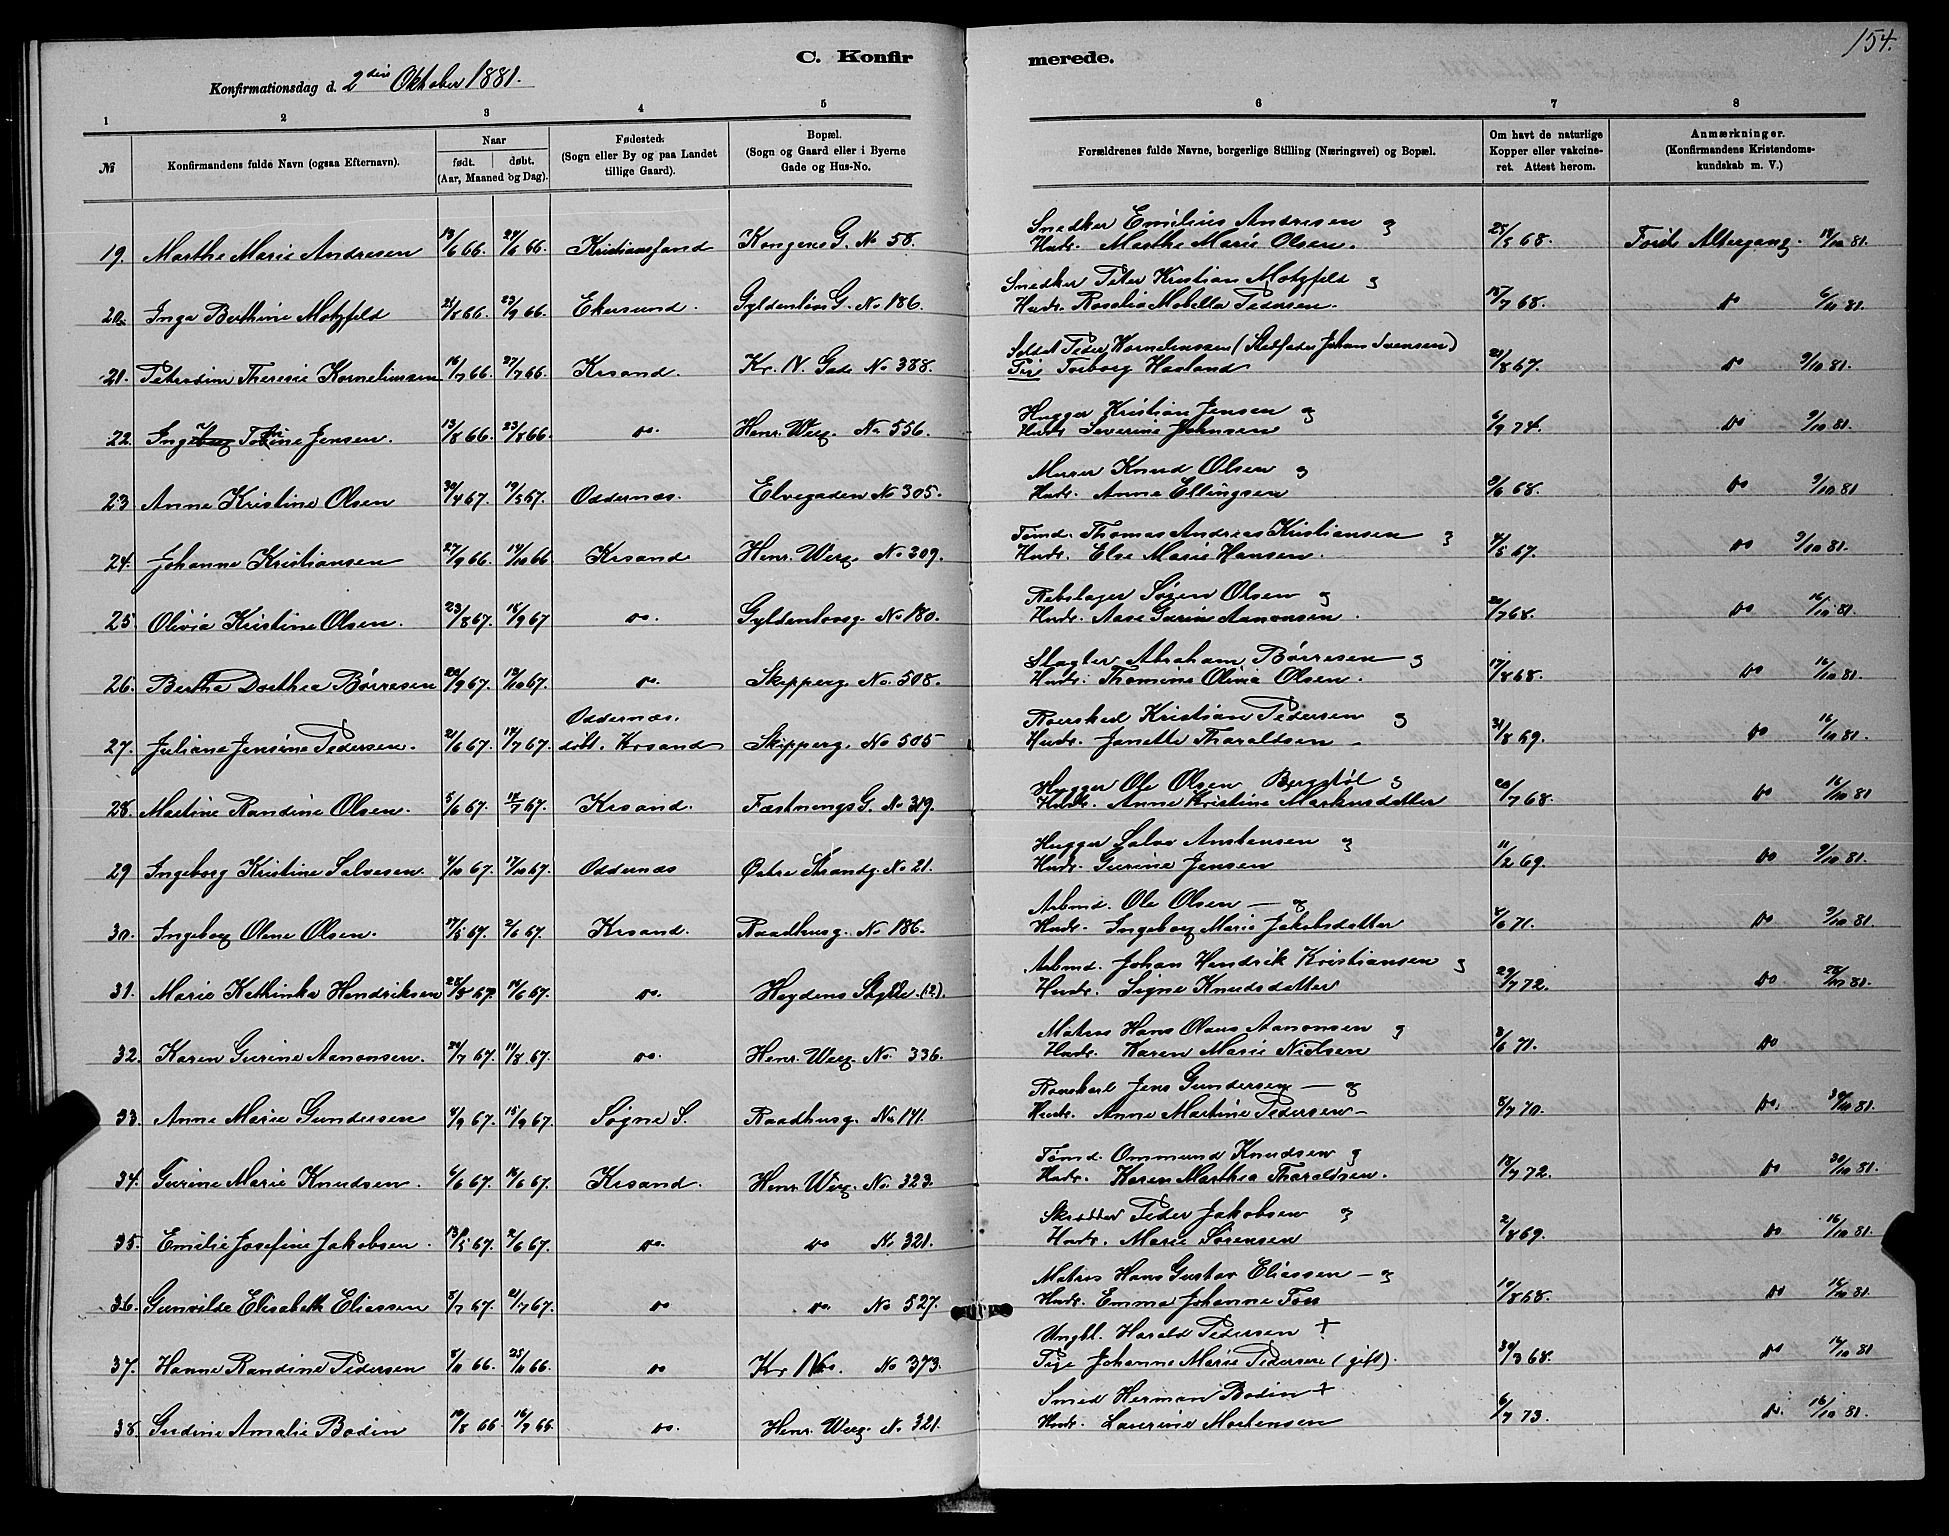 154.
C. Konfirmerede.
Konfirmationsdag d. 2den Oktober 1881.
1 2 3 4 5 6 7 8
№ Konfirmandens fulde Navn (ogsaa Efternavn). Naar født. døbt. (Aar, Maaned og Dag). Fødested: (Sogn eller By og paa Landet tillige Gaard). Bopæl. (Sogn og Gaard eller i Byerne Gade og Hus-No. Forældrenes fulde Navne, borgerlige Stilling (Næringsvei) og Bopæl. Om havt de naturlige Kopper eller vakcineret. Attest herom. Anmærkninger. (Konfirmandens Kristendomskundskab m. V.)
Snedker Emilius Andresen og
19. Marthe Marie Andresen 13/6 66. 24/6 66. Kristianssand Kongens G. No 58. Hustr. Marthe Marie Olsen. 25/5 68. Altergang. 81.
Snedker Peter Kristian Motzfeld og
20. Inga Berthine Motzfeld 25/8 66. 23/9 66. Ekersund. Gyldenløvs G. No 186. Hustr. Rosalia Mobella Pedersen. 15/7 68. do 6/10 81.
Soldat Peder Kornelinssen (Stedfader Johan Svensen)
21. Petrodine Theresie Kornelinssen 16/7 66. 27/7 66. Krsand. Kr. IV. Gade No 388. Pie Torborg Haaland 21/8 67. do 9/10 81.
Hugger Kristian Jensen og
22. Jensen. 13/8 66. 23/8 66. do. Henr. Werg. No 556. Hustr. Severine Johnsen 6/9 74. do 9/10 81.
Murer Knud Olsen og
23. Anne Kristine Olsen 30/4 67. 19/5 67. Oddernæs. Elvegaden No 305. Hustr. Anne Ellingsen 9/6 68. do 9/10 81
Tømd. Thomas Andreas Kristiansen og
24. Johanne Kristiansen 27/9 66. 14/10 66 Krsand Henr. Werg. No 309. Hustr. Else Marie Hansen. 4/5 67. do 9/10 81.
Rebslager Søren Olsen og
25. Olivia Kristine Olsen. 23/8 67. 15/9 67 do. Gyldenlovsg. No 180. Hustr. Aase Gurine Aanonsen. 20/7 68. do 16/10 81.
Slagter Abraham Børresen og
26. Bertha Dorthea Børresen 20/9 67. 13/10 67. do. Skipperg. No. 508. Hustr. Thomine Olivia Olsen. 17/8 68. do 16/10 81.
Oddernæs. Kristian Pedersen og
27. Juliane Jensine Pedersen. 21/6 67. 14/7 67. døbt. Krsand Skipperg. No 505 Hustr. Janette Tharaldsen 31/8 69. do 16/10 81.
Hugger Ole Olsen Bergstøl og
28. Martine Randine Olsen. 5/6 67. 14/7 67. Krsand. Fæstnings G. No 319. Hustr. Anne Kristine Markusdatter 20/7 68. do 16/10 81.
Hugger Salve Anstensen og
29 Ingeborg Kristine Salvesen. 4/10 67. 17/10 67. Oddernæs Østre Strandg. No 21. Hustr. Gurine Jensen 11/2 69. do 9/10 81.
Arbmd. Ole Olsen og
30. Ingeborg Olene Olsen. 17/5 67. 2/6 67. Krsand. Raadhusg. No 186. Hustr. Ingeborg Marie Jakobsdatter 4/6 71. do 9/10 81.
Arbmd. Johan Hendrik Kristiansen og
31. Marie Kathinka Hendriksen 28/5 67. 16/6 67. do. Heydens (2). Hustr. Signe Knudsdatter 29/7 72. do 81.
Matros Hans Olaus Aanonsen og
32. Karen Gurine Aanonsen. 24/7 67. 11/8 67. do. Henr. Werg. No. 336. Hustr. Karen Marie Nielsen 3/6 71. do
Jens Gundersen og
33. Anne Marie Gundersen 4/9 67. 15/9 67. Søgne S. Raadhusg. No 141. Hustr. Anne Martine Pedersen 5/7 70. do. 30/10 81.
Tømd. Ommund Knudsen og
34. Gurine Marie Knudsen. 6/6 67. 16/6 67. Krsand. Henr. Werg. No. 323. Hustr. Karen Marthea Tharaldsen. 19/7 72. do 30/10 81.
Skrædder Peder Jakobsen og
35. Emilie Josefine Jakobsen. 13/5 67. 2/6 67. do. do No 321. Hustr. Marie Sørensen 2/8 69. do 16/10 81.
Matros Hans Gustav Eliassen og
36. Gunvilde Elisabeth Eliassen 8/7 67. 21/7 67. do do. No 527. Hustr. Emma Johanne Foss 19/8 68. do 16/10 81.
Ungkl. Harald Pedersen +
37. Hanne Randine Pedersen 8/11 66. 25/11 66. do Kr IV do. No 373. Pige Johanne Marie Pedersen (gift). 30/3 68. do 81
Smed Herman Bodin +
38. Gurdine Amalie Bodin 10/8 66. 16/9 66. do. Henr. Werg. No. 321. Hustr. Laurine Mortensen 6/7 73. do 16/10 81.